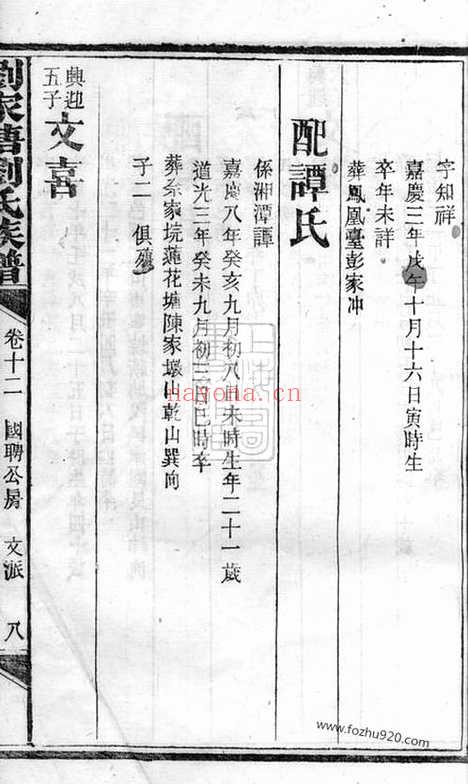 字知祥
嘉慶三年戊午十月十六日寅時生
卒年未詳
葬鳳凰臺彭家冲
配譚氏
係湘潭譚
嘉慶八年癸亥九月初八日未時生年二十一歲
道光三年癸未九月初三日巳時卒
葬余家垸蓮花塘陳家壋山乾山巽向
子二 俱殤
典迎五子 文喜
劉家塘劉氏族譜
卷十二 國聘公房 文派 八
nayona.cn
www.fozhu920.com